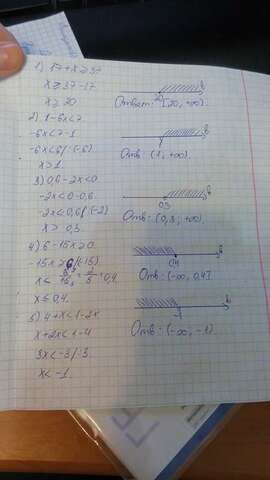 1) 17+x ≥ 37
x ≥ 37-17
x ≥ 20
Ответ: [20, +∞)
2) 1-6x<7
-6x<7-1
-6x<6/·(-6)
x>1
Отв: (1, +∞)
3) 0,6-2x<0
-2x<0-0,6
-2x<0,6/(-2)
x > 0,3
0,3
Отв: (0,3, +∞)
4) 6-15x≥0
-15x ≥ 6/(-15)
x ≤ 6/15 = 2/5 = 0,4
x ≤ 0,4
0,4
Отв: (-∞, 0,4]
5) 4+x<1-2x
x+2x<1-4
3x<-3/:3
x<-1
-1
Отв: (-∞, -1)